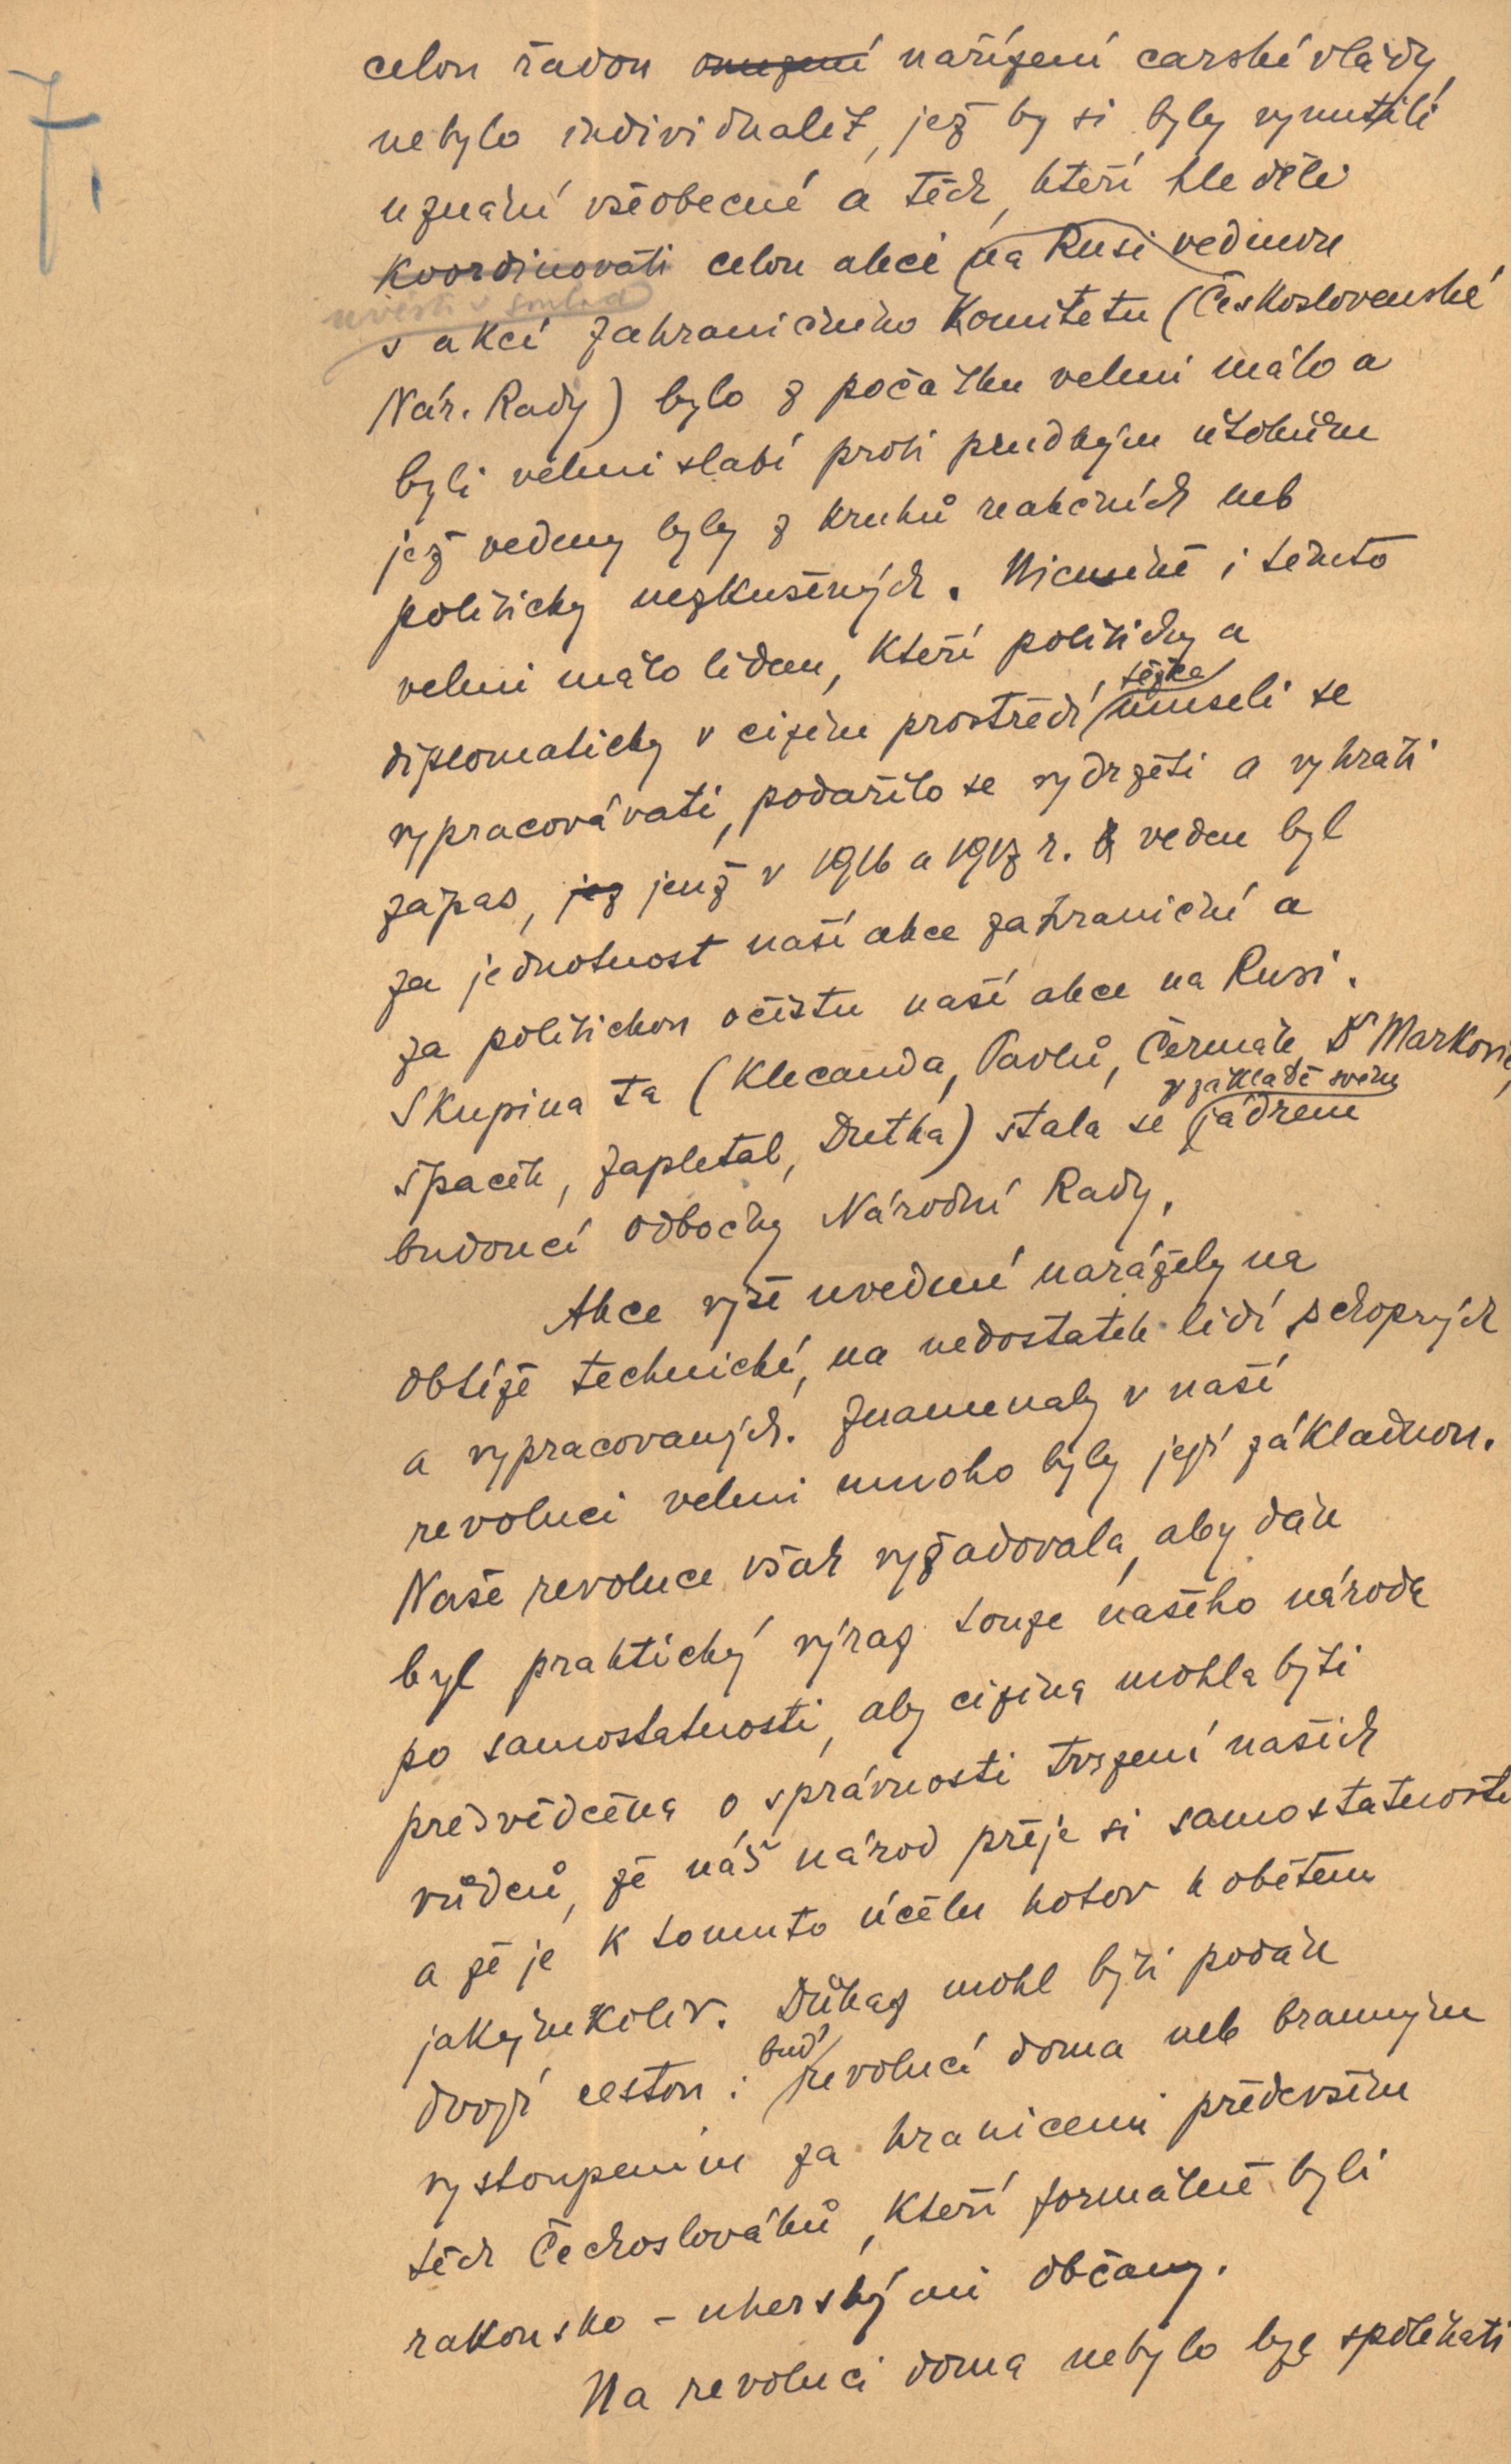 7.
celou řadou omezení nařízení carské vlády,
nebylo individualit, jež by si byly vynutili
uznání všeobecné a těch, kteří hleděli
koordinovati celou akci na Rusi vedenou
uvésti v soulad
s akcí zahraničního Komitétu (Československé
Nár. Rady) bylo z počátku velmi málo a
byli velmi slabí proti prudkým útokům
jež vedeny byly z kruhů reakčních neb
politicky nezkušených. Nicméně i těmto
velmi málo lidem, kteří politicky a
těžce
diplomaticky v cizím prostředí museli se
vypracovávati, podařilo se vydržeti a vyhráti
zápas, jež jenž v 1916 a 1917 r. veden byl
za jednotnost naší akce zahraniční a
za politickou očistu naší akce na Rusi.
Skupina ta (Klecanda, Pavlů, Čermák, Dr Markovič,
v základě svém
Špaček, Zapletal, Dutka) stala se jádrem
budoucí odbočky Národní Rady.
Akce výše uvedené narážely na
obtíže technické, na nedostatek lidí schopných
a vypracovaných. Znamenaly v naší
revoluci velmi mnoho byly její základnou.
Naše revoluce však vyžadovala, aby dán
byl praktický výraz touze našeho národa
po samostatnosti, aby cizina mohla býti
předvědčena o správnosti tvrzení našich
vůdců, že náš národ přeje si samostatnosti
a že je k tomuto účelu hotov k obětem
jakýmkoliv. Důkaz mohl býti podán
buď
dvojí cestou: revolucí doma neb branným
vystoupením za hranicemi především
těch Čechoslováků, kteří formálně byli
rakousko-uherskými občany.
Na revoluci doma nebylo lze spoléhati